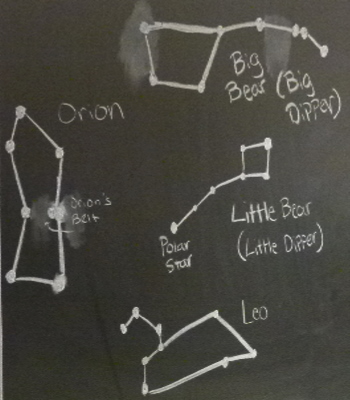 Big
Bear (Big
Dipper)
Orion
Orion's
Belt
Little Bear
(Little Dipper)
Polar
Star
Leo